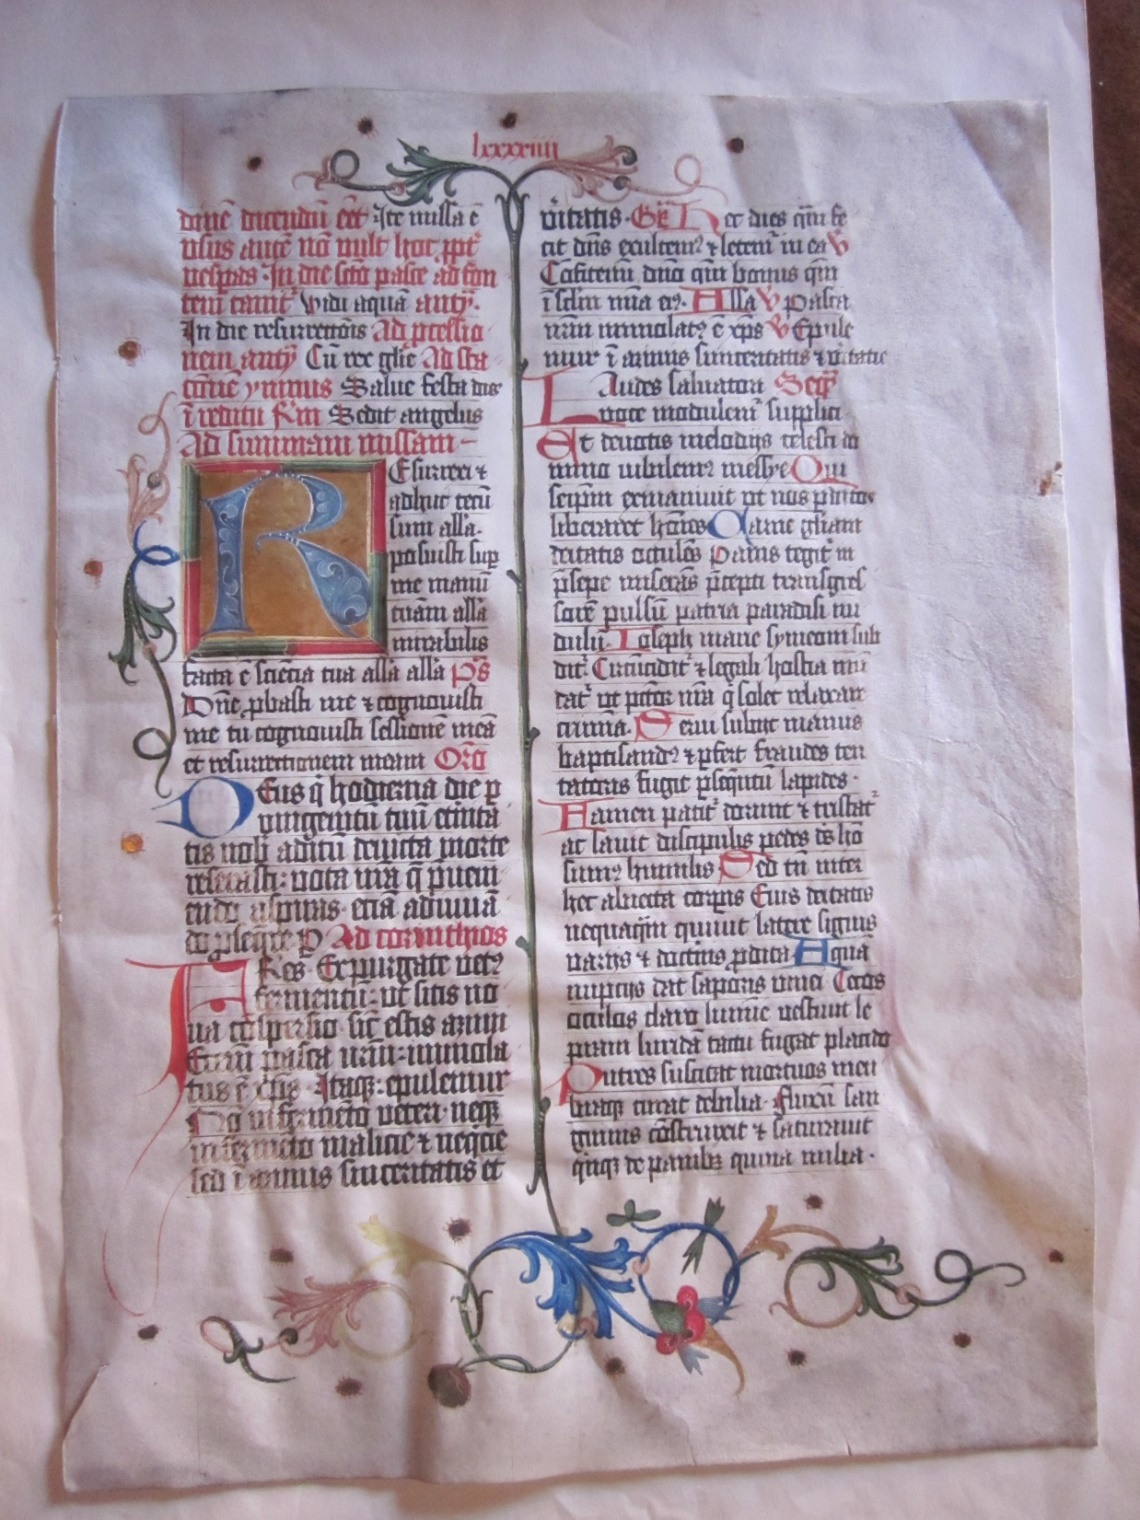 lxxxxiiii
dinē dicendū ēēt Ite missa ē
usus autē nō vult hoc ppt̄
vesp̄as In die scō pasce ad fon
tem canit̄ Vidi aquā antyᵃ.
In die resurrectōis Ad p̄cessio
nem antyᵃ Cū rex glīe Ad sta
cōnē ymnus Salue festa dies
ī reditu R̄m Sedit angelus
Ad summam missam
REsurrexi ⁊
adhuc tecū
sum alla
posuisti sup
me manū
tuam alla
mirabilis
facta ē sciēcia tua alla alla p̄s
Dn̄e p̄basti me ⁊ cognouisti
me tu cognouisti sessionē meā
et resurrectionem meam Orō
DEus q̄ hodierna die p
vnigenitū tuū eterni
tis nob̄ aditū deuicta morte
reserasti: vota nr̄a q̄ pueni
endo aspiras. eciā adiuuā
do p̄seq̄re p̄ Ad corinthios
FRēs Expurgate vetꝰ
fermentū: vt sitis no
ua cōspersio sic̄ estis azimi
Etenī pasca nr̄m: immola
tus ē xp̄s. Itaqꝫ: epulemur
Nō in fermēto veteri: neqꝫ
in fermēto malicie ⁊ neq̄cie
sed ī azimis sinceritatis et
ūitatis. Gr̄ Hec dies quā fe
cit dn̄s exultemꝰ ⁊ letem̄ in ea V̄
Cōfitemī dn̄o qm̄ bonus qm̄
ī sclm̄ mīa eiꝰ. Alla V̄ Pasca
nr̄m immolatꝰ ē xp̄s V̄ Epule
mur ī azimis sinceritatis ⁊ ū̄itatis
Laudes saluatori Seq̄
voce modulem̄ supplici
Et deuotis melodijs celesti do
mino iubilemꝰ messye Qui
seip̄m exinaniuit vt nos p̄ditos
liberaret hōīes Carne gliam
deitatis occulēs Pānis tegit̄ in
p̄sepe miserās p̄cepti transgres
sorē pulsū patria paradisi nu
dulū. Ioseph marie symeoni sub
dit̄. Circūcidit̄ ⁊ legali hostia mū
dat̄ vt pctōr nr̄a q̄ solet relaxare
crimina. Serui subijt manus
baptisandꝰ ⁊ p̄fert fraudes ten
tatoris fugit p̄seq̄ntū lapides.
Famen patit̄ dormit ⁊ tristat̄
ac lauit discipulis pedes dꝰs hō
sumꝰ humilis Sed tn̄ inter
hec abiecta corp̄is Eius deitatis
nequaq̄m quiuit latere signis
varijs ⁊ doctrinis prodita Aquā
nuptijs dat saporis vini Cecos
oculos claro lumīe vestiuit le
pram luridā tactu fugat placido
Putres suscitat mortuos mem
braqꝫ curat debilia. Fluxū san
guinis cōstrinxit ⁊ saturauit
qn̄qꝫ de panibꝫ quina milia.